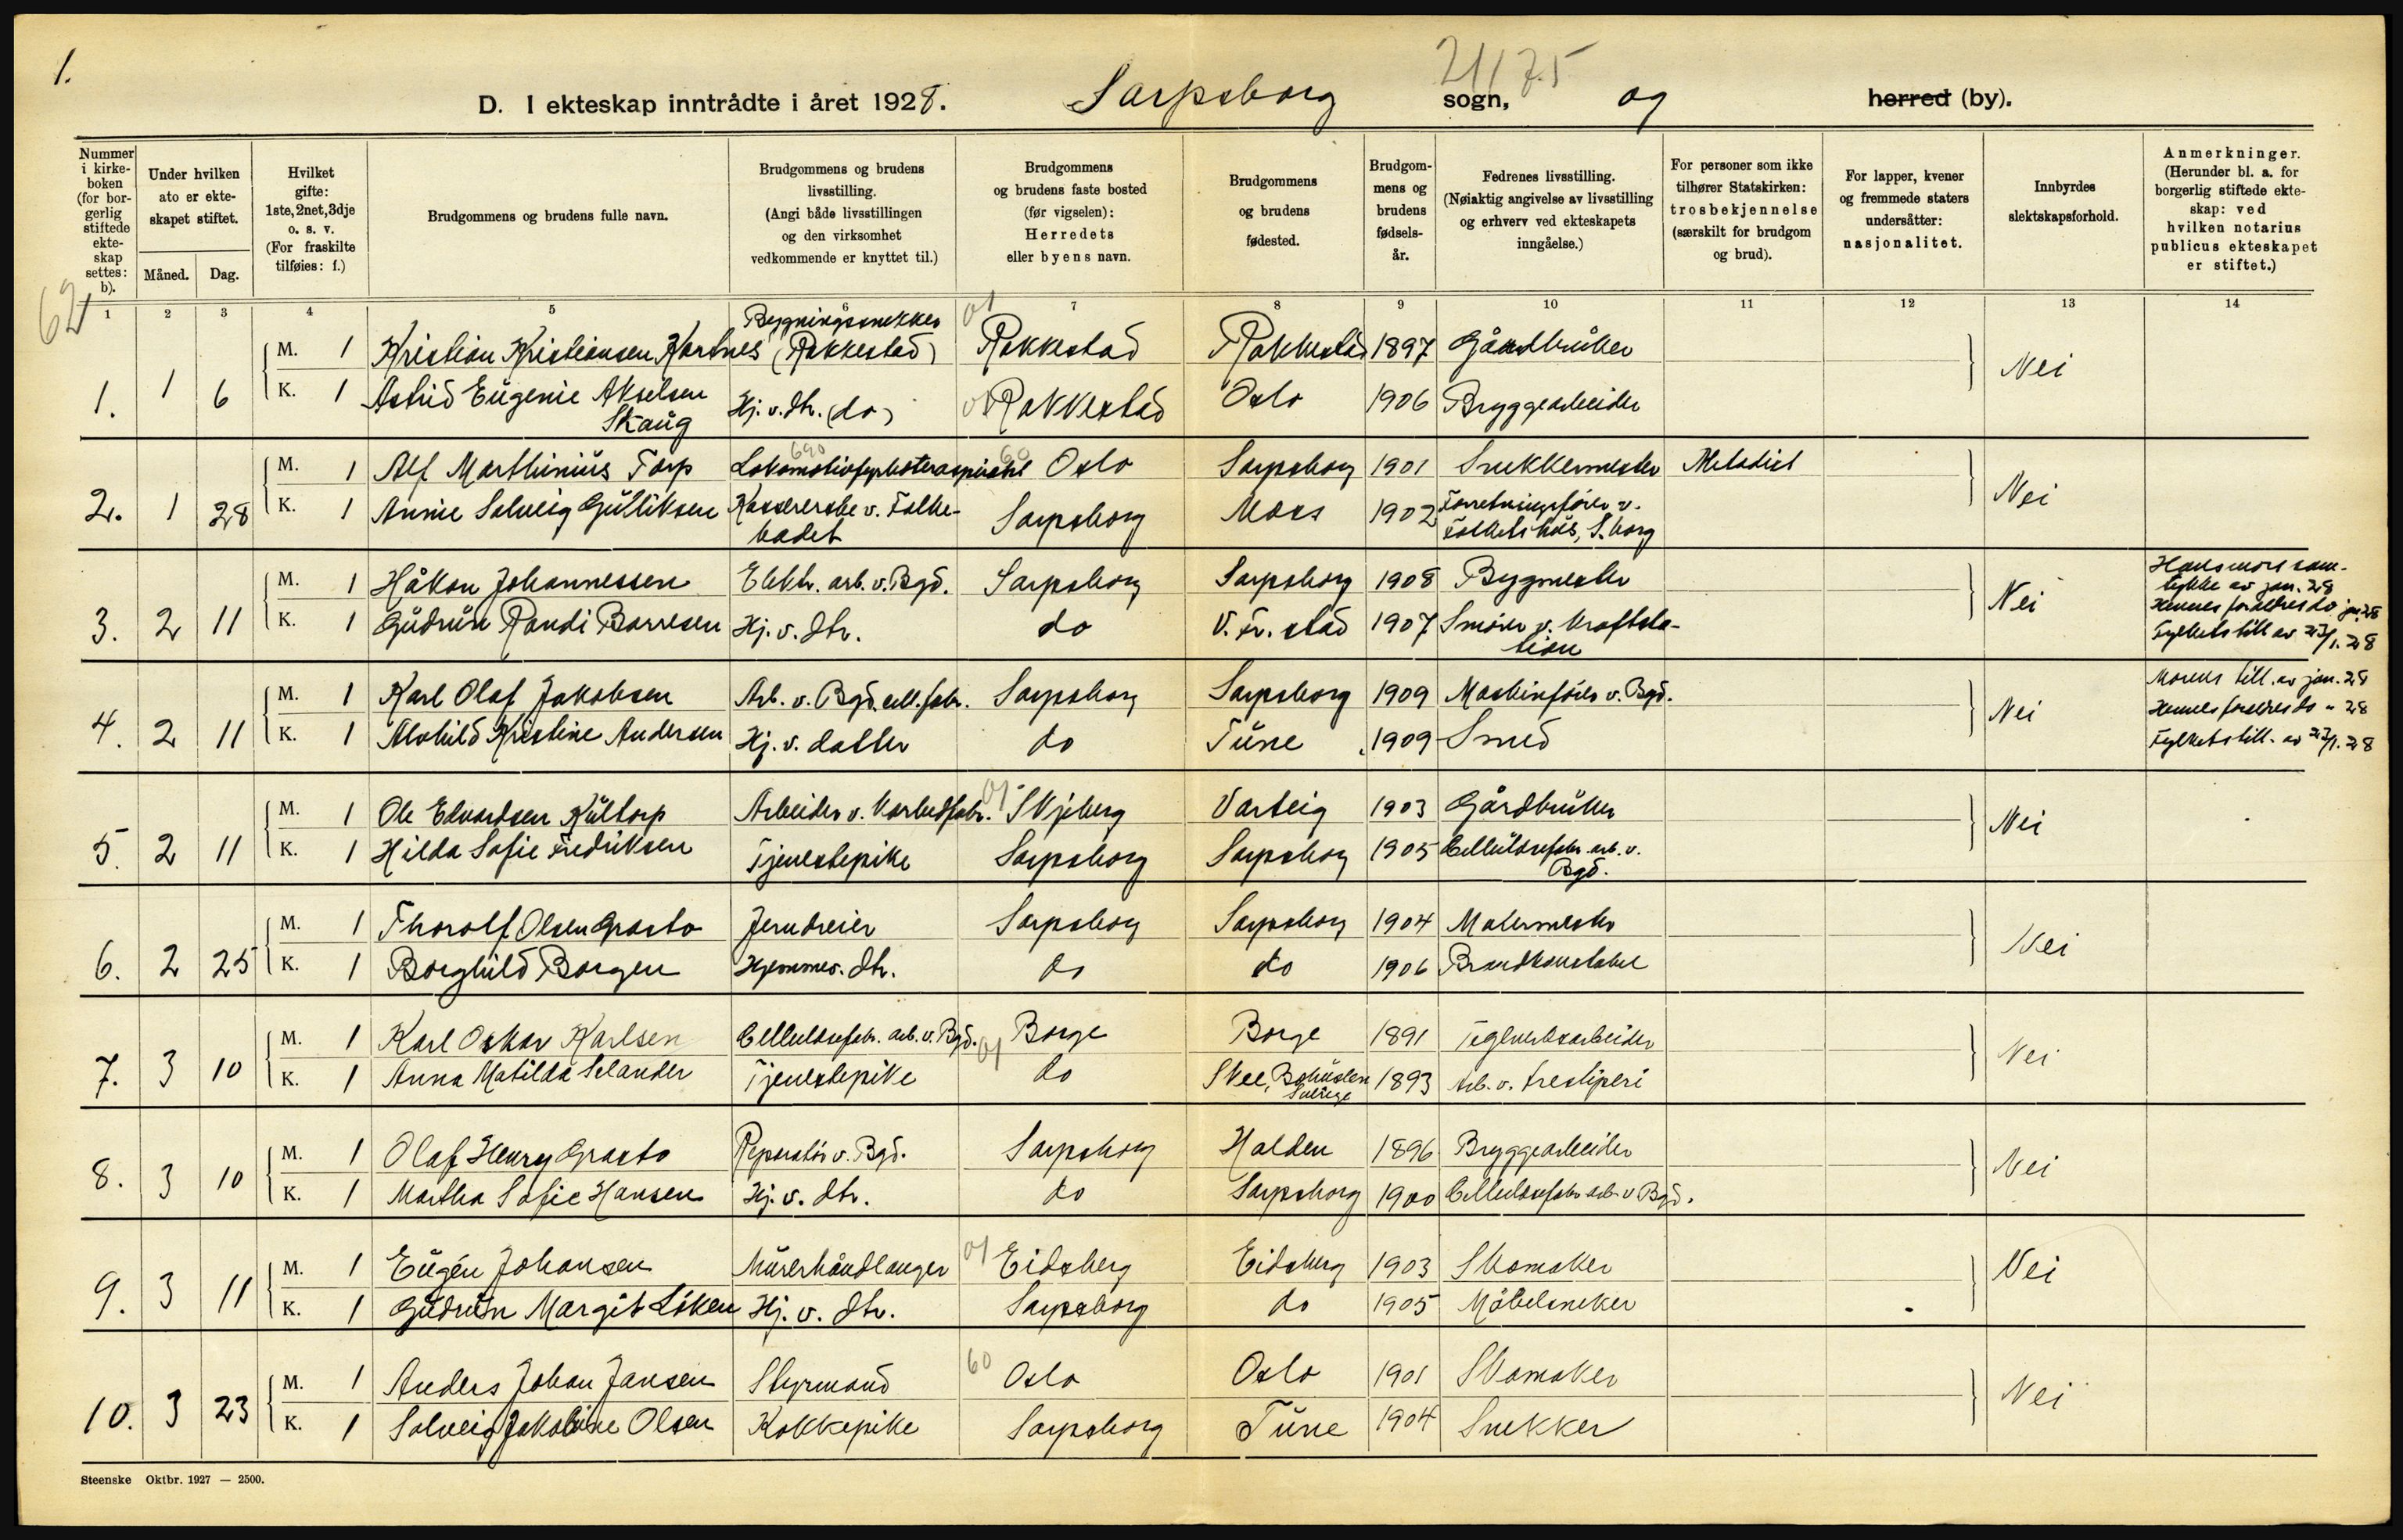 1.
21175
D. I ekteskap inntrådte i året 1928. Sarpsborg sogn, og herred (by).
Nummer i kirkeboken (for borgerlig stiftede ekteskap settes: b).
Under hvilken ato er ekteskapet stiftet.
Måned. Dag.
Hvilket gifte: 1ste, 2net, 3dje o. s. v. (For fraskilte tilføies: f.)
Brudgommens og brudens fulle navn.
Brudgommens og brudens livsstilling. (Angi både livsstillingen og den virksomhet vedkommende er knyttet til.)
Brudgommens og brudens faste bosted (før vigselen): Herredets eller byens navn.
Brudgommens og brudens fødested.
Brudgommens og brudens fødselsår.
Fedrenes livsstilling. (Nøiaktig angivelse av livsstilling og erhverv ved ekteskapets inngåelse.)
For personer som ikke tilhører Statskirken: trosbekjennelse (særskilt for brudgom og brud).
For lapper, kvener og fremmede staters undersåtter: nasjonalitet.
Innbyrdes slektskapsforhold.
Anmerkninger. (Herunder bl. a. for borgerlig stiftede ekteskap: ved hvilken notarius publicus ekteskapet er stiftet.)
1 2 3 4 5 6 7 8 9 10 11 12 13 14
62
Bygningssnekker 01
M. 1 Kristian Kristiansen Kartnes (Rakkestad) Rakkestad Rakkestad 1897 Gårdbruker
1. 1 6 K. 1 Astrid Eugenie Akselsen Skaug Hj. v. dtr. (do) 01 Rakkestad Oslo 1906 Bryggearbeider Nei
690 60
M. 1 Alf Marthinius Torp Lokomotivfyrbøteraspirant Oslo Sarpsborg 1901 Snekkermester Metodist
2. 1 28 K. 1 Annie Solveig Gulliksen Kassererske v. Folkebadet Sarpsborg Moss 1902 Forretningsfører v. Folkets hus, S.borg Nei
M. 1 Håkon Johannessen Elektr. arb. v. Bgd. Sarpsborg Sarpsborg 1908 Bygmester
3. 2 11 K. 1 Gudrun Randi Borresen Hj. v. dtr. do V. Fr. stad 1907 Smører v. Kraftstation Nei
Hans mors samtykke av jan. 28
Hennes foreldres do jan. 28
Fylkets till av 27/1. 28
M. 1 Karl Olaf Jakobsen Arb. v. Bgd. cell. fabr. Sarpsborg Sarpsborg 1909 Maskinfører v. Bgd.
4. 2 11 K. 1 Alvhild Kristine Andersen Hj. v. datter do Tune 1909 Smed Nei
Morens till. av jan. 28
Hennes foreldres do " 28
Fylkets till. av 27/1. 28
M. 1 Ole Edvardsen Kultorp Arbeider v. Karbidfabr. 01 Skjeberg Varteig 1903 Gårdbruker
5. 2 11 K. 1 Hilda Sofie Fredriksen Tjenestepike Sarpsborg Sarpsborg 1905 Cellulosefabr. arb. v. Bgd. Nei
M. 1 Thorolf Olsen Grasto Jerndreier Sarpsborg Sarpsborg 1904 Malermester
6. 2 25 K. 1 Borghild Borgen Hjemmev. dtr. do do 1906 Brandkonstabel Nei
M. 1 Karl Oskar Karlsen Cellulosefabr. arb. v. Bgd. Borge Borge 1891 Teglverksarbeider
7. 3 10 K. 1 Anna Matilda Selander Tjenestepike 01 do Skee, Bohuslen Sverige 1893 Arb. v. tresliperi Nei
M. 1 Olaf Henry Grasto Reparatør v. Bgd. Sarpsborg Halden 1896 Bryggearbeider
8. 3 10 K. 1 Martha Sofie Hansen Hj. v. dtr. do Sarpsborg 1900 Cellulosefabr arb v Bgd. Nei
M. 1 Eugén Johansen Murerhåndlanger 01 Eidsberg Eidsberg 1903 Skomaker
9. 3 11 K. 1 Gudrun Margit Løken Hj. v. dtr. Sarpsborg do 1905 Møbelsneker Nei
M. 1 Anders Johan Jansen Styrmand 60 Oslo Oslo 1901 Skomaker
10. 3 23 K. 1 Solveig Jakobine Olsen Kokkepike Sarpsborg Tune 1904 Snekker Nei
Steenske Oktbr. 1927 — 2500.